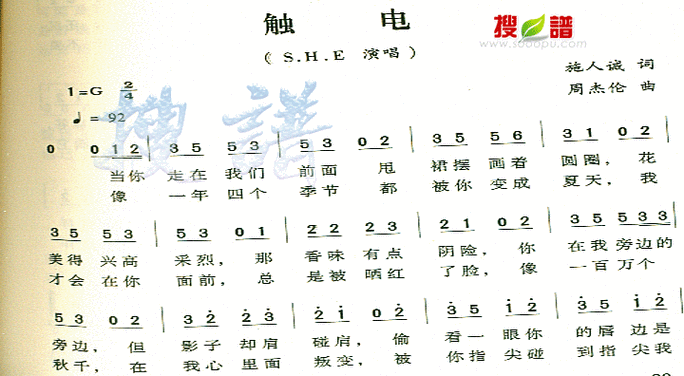 触 电
搜 谱
www.sooopu.com
( S.H.E 演唱 )
施人诚 词
周杰伦 曲
1=G 2/4
♩= 92
搜 谱
0 0 1 2 | 3 5 5 3 | 5 3 0 2 | 3 5 5 6 | 3 1 0 2 |
当你 走在 我们 前面 甩 裙摆 画着 圆圈, 花
像 一年 四个 季节 都 被你 变成 夏天, 我
3 5 5 3 | 5 3 0 1 | 2 2 2 3 | 2 1 0 2 | 3 5 5 3 3 |
美得 兴高 采烈, 那 香味 有点 阴险, 你 在我 旁边的
才会 在你 面前, 总 是被 晒红 了脸, 像 一百 万个
5 3 0 2 | 3 2̇ 2̇ 3̇ | 2̇ 1̇ 0 2̇ | 3̇ 5̇ 1̇ 3̇ | 3̇ 5̇ 1̇ 2̇ |
旁边, 但 影子 却肩 碰肩, 偷 看一 眼你 的唇 边是
秋千, 在 我心 里面 叛变, 被 你指 尖碰 到指 尖我